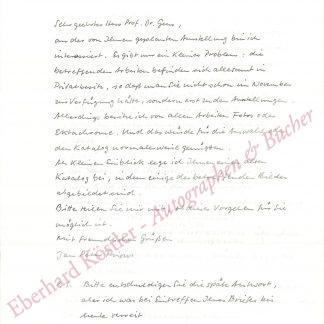 Sehr geehrter Herr Prof. Dr. Gens,
an der von Ihnen geplanten Ausstellung bin ich
interessiert. Es gibt nur ein kleines Problem: die
betreffenden Arbeiten befinden sich allesamt in
Privatbesitz, so daß man Sie nicht schon im November
zur Verfügung hätte, sondern erst zu den Ausstellungen.
Allerdings besitze ich von allen Arbeiten Fotos oder
Ektachrome. Und das würde für die Auswahl und
den Katalog normalerweise genügen.
Als kleinen Einblick lege ich Ihnen einen alten
Katalog bei, in dem einige der betreffenden Bilder
abgebildet sind.
Bitte teilen Sie mir mit, ob dieses Vorgehen für Sie
möglich ist.
Mit freundlichen Grüßen
Jan Peter
Bitte entschuldigen Sie die späte Antwort,
aber ich war bei Eintreffen Ihres Briefes bis
heute verreist
Eberhard Köstler - Autographen & Bücher